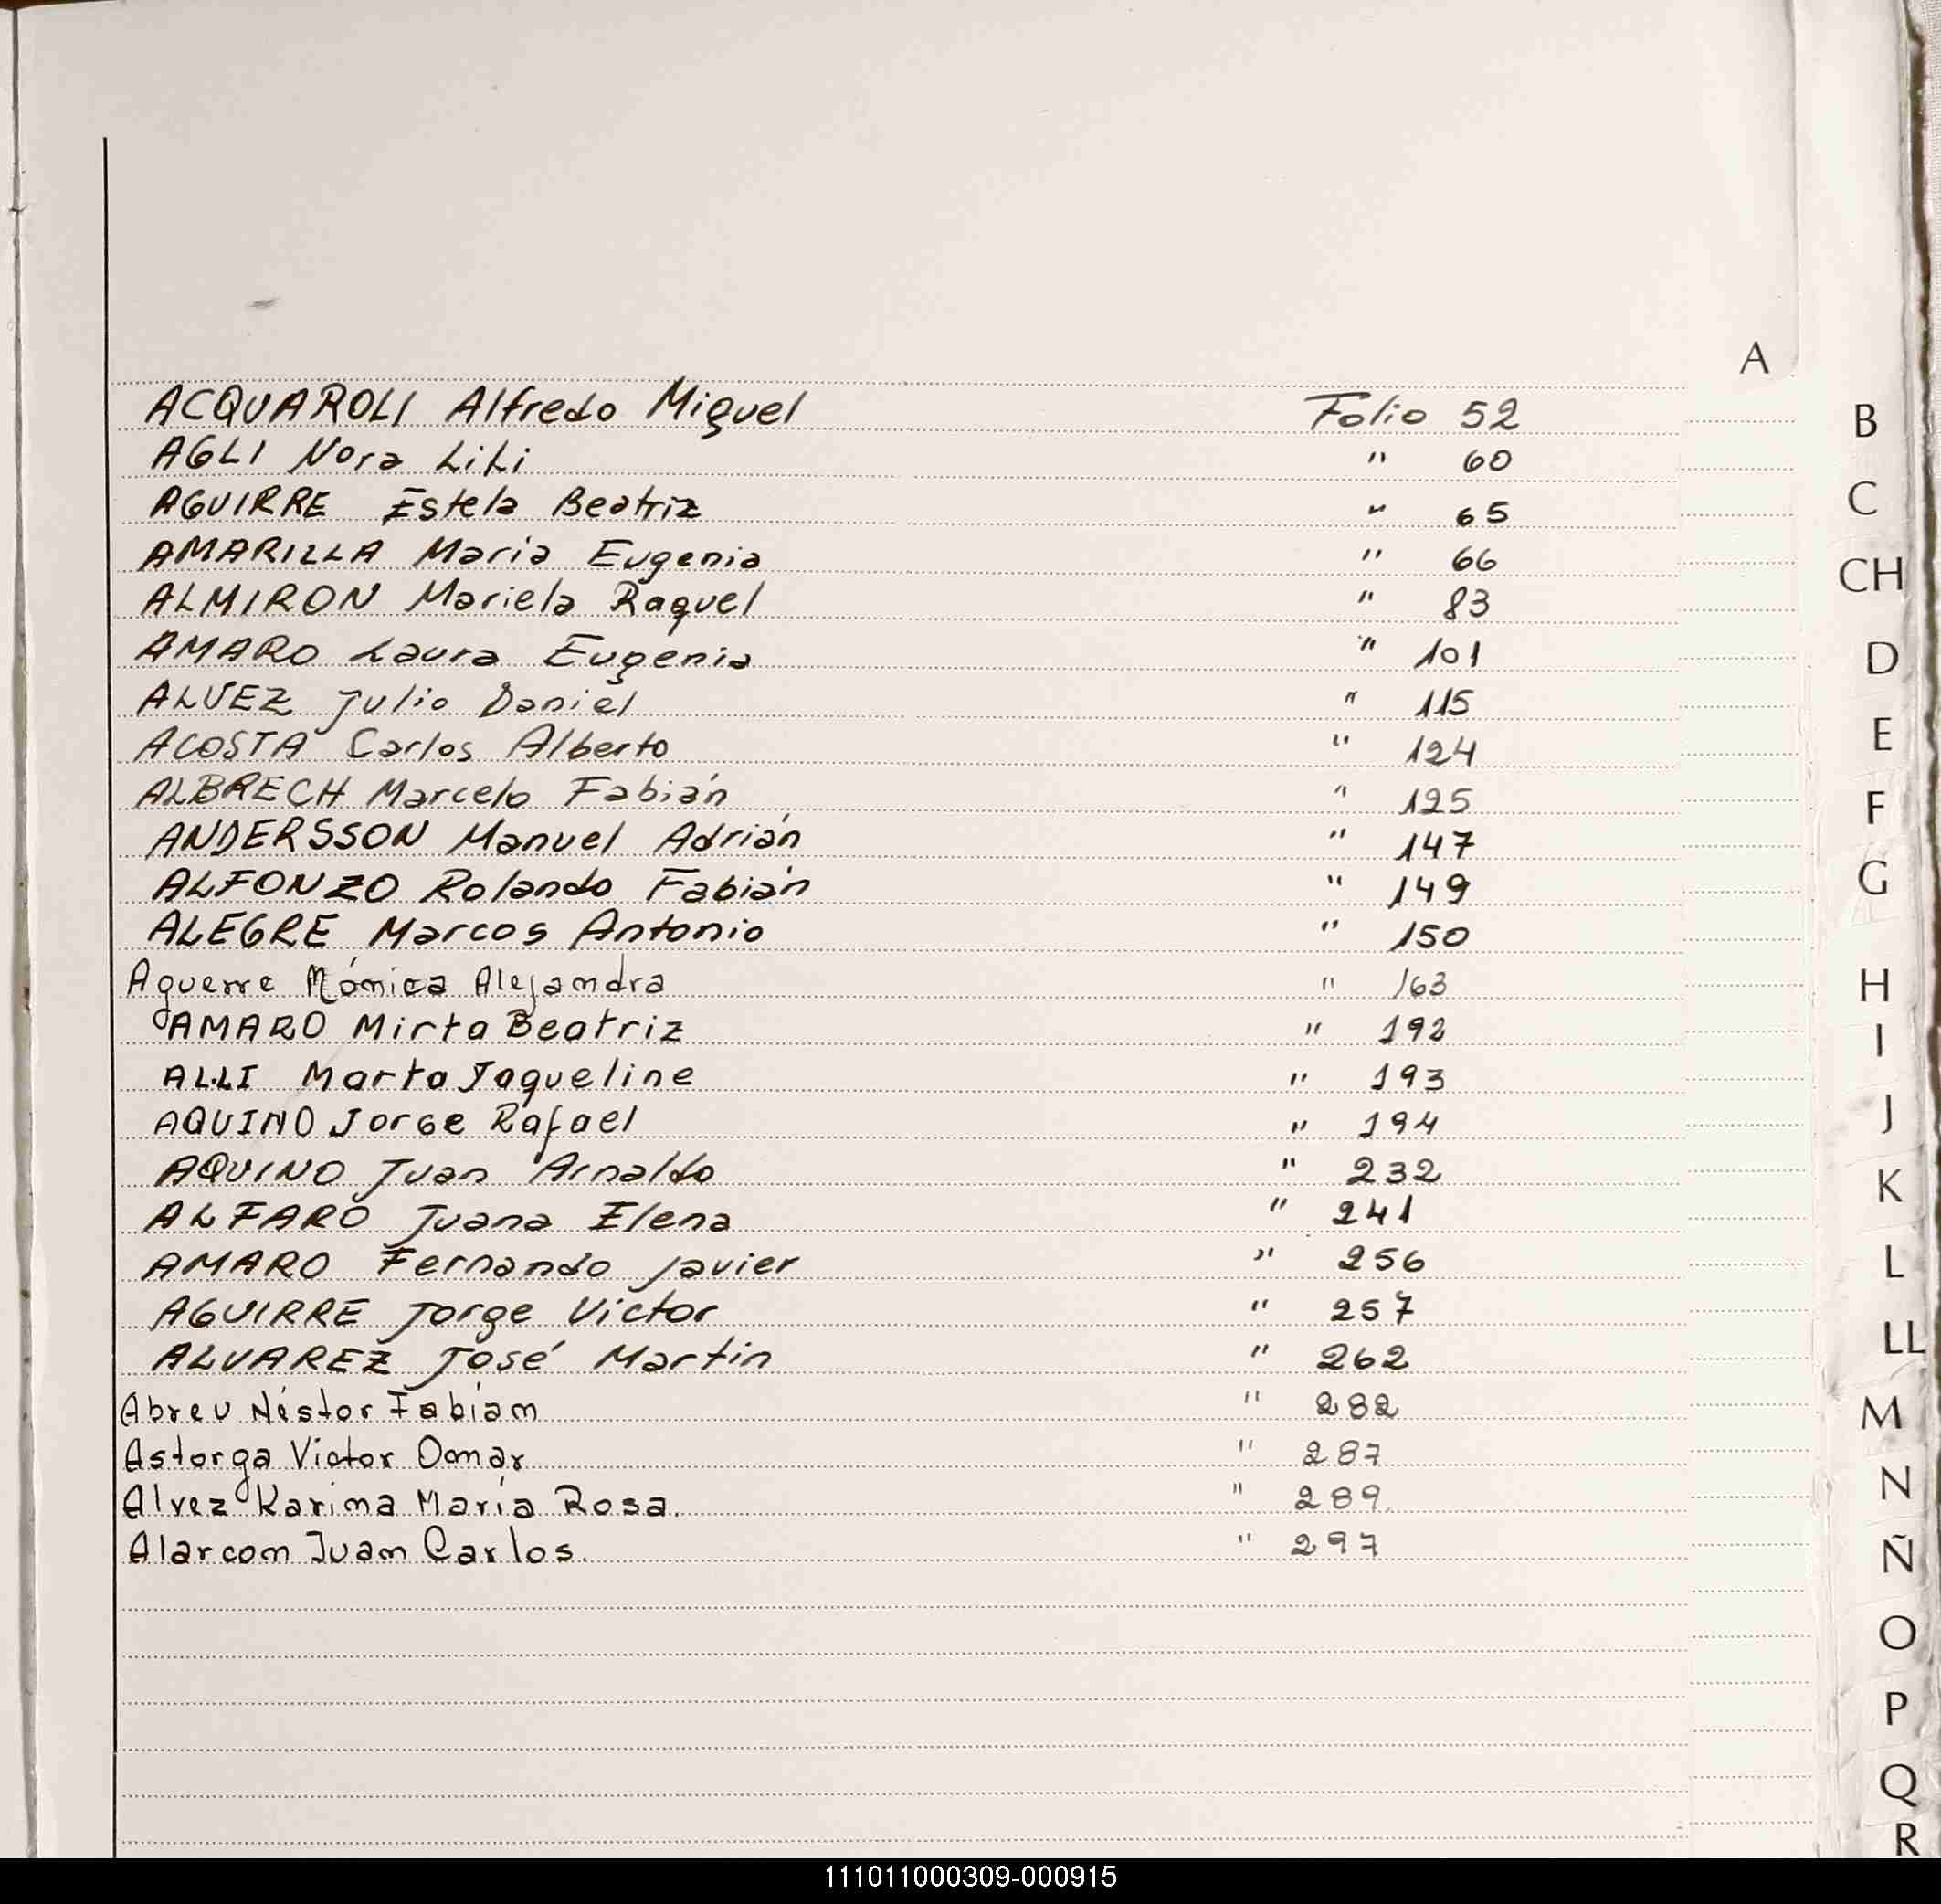 A
ACQUAROLI Alfredo Miguel Folio 52
AGLI Nora Lili " 60
AGUIRRE Estela Beatriz " 65
AMARILLA Maria Eugenia " 66
ALMIRON Mariela Raquel " 83
AMARO Laura Eugenia " 101
ALVEZ Julio Daniel " 115
ACOSTA Carlos Alberto " 124
ALBRECH Marcelo Fabián " 125
ANDERSSON Manuel Adrián " 147
ALFONZO Rolando Fabián " 149
ALEGRE Marcos Antonio " 150
Aguerre Mónica Alejandra " 163
AMARO Mirta Beatriz " 192
ALLI Marta Jaqueline " 193
AQUINO Jorge Rafael " 194
AQUINO Juan Arnaldo " 232
ALFARO Juana Elena " 241
AMARO Fernando Javier " 256
AGUIRRE Jorge Victor " 257
ALVAREZ José Martin " 262
Abreu Néstor Fabian " 282
Astorga Victor Omar " 287
Alvez Karina María Rosa. " 289
Alarcon Juan Carlos. " 297
B
C
CH
D
E
F
G
H
I
J
K
L
LL
M
N
Ñ
O
P
Q
R
111011000309-000915